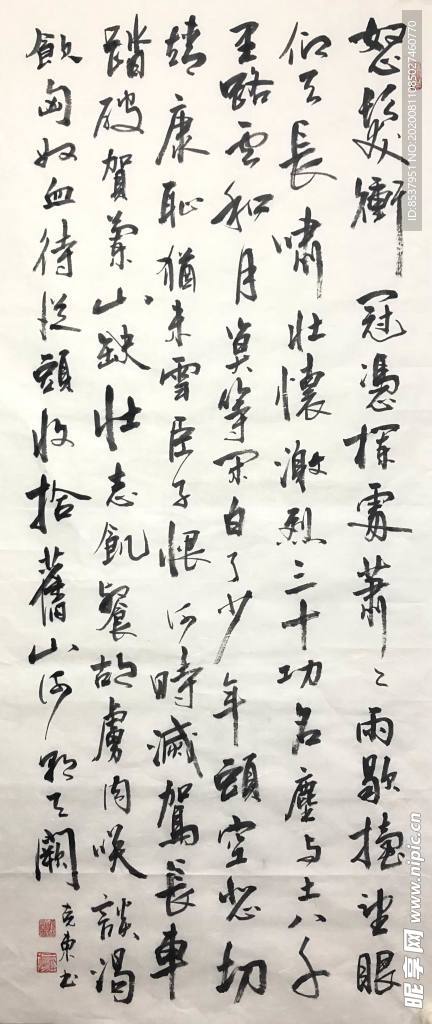 怒髮衝冠憑欄處蕭〻雨歇擡望眼
仰天長嘯壯懷激烈三十功名塵与土八千
里路雲和月莫等閑白了少年頭空悲切
靖康恥猶未雪臣子恨何時滅駕長車
踏破賀蘭山缺壯志飢餐胡虜肉咲談渴
飲匈奴血待從頭收拾舊山河朝天闕
克東书
ID:8537951 NO:20200811085027460770
昵享网 www.nipic.cn